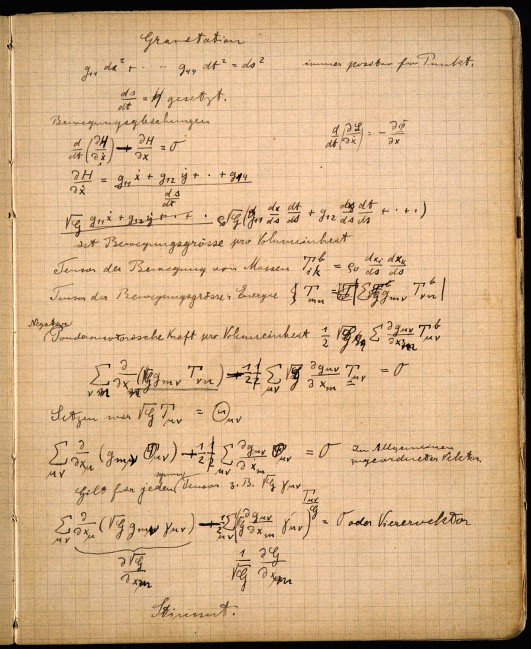 Gravitation
g₁₁ dx² + · · · g₄₄ dt² = ds² immer positiv für Punkt.
ds/dt = H gesetzt.
Bewegungsgleichungen
d/dt (∂H/∂ẋ) − ∂H/∂x = 0 d/dt (∂L/∂ẋ) = − ∂Φ/∂x
∂H/∂ẋ = (g₁₁ ẋ + g₁₂ ẏ + · + g₁₄) / (ds/dt)
√G g₁₁ ẋ + g₁₂ ẏ + · · · ρ₀ √G (g₁₁ dx/ds dt/ds + g₁₂ dy/ds dt/ds + · + ·)
ist Bewegungsgrösse pro Volumeinheit
Tensor der Bewegung von Massen Tᵇᵢₖ = ρ₀ dxᵢ/ds dxₖ/ds
Tensor der Bewegungsgrösse u. Energie Tₘₙ = Σ √G gₘᵥ Tᵇᵥₙ
Negative Ponderomotorische Kraft pro Volumeinheit 1/2 √G Σ ∂gμν/∂xₘ Tᵇμν
Σ ∂/∂xₙ (√G gₘᵥ Tᵥₙ) − 1/2 Σ √G ∂gμν/∂xₘ Tμν = 0
Setzen wir √G Tμν = Θμν
Σ ∂/∂xμ (gₘᵥ Θμν) − 1/2 Σ ∂gμν/∂xₘ Θμν = 0 Im Allgemeinen
zugeordneter Vektor
Gilt für jeden symm. Tensor z. B. √G γμν
Σ ∂/∂xμ (√G gₘᵥ γμν) − 1/2 Σ √G ∂gμν/∂xₘ γμν = 0 oder Vierervektor
∂√G/∂xₘ 1/√G ∂G/∂xₘ
Stimmt.